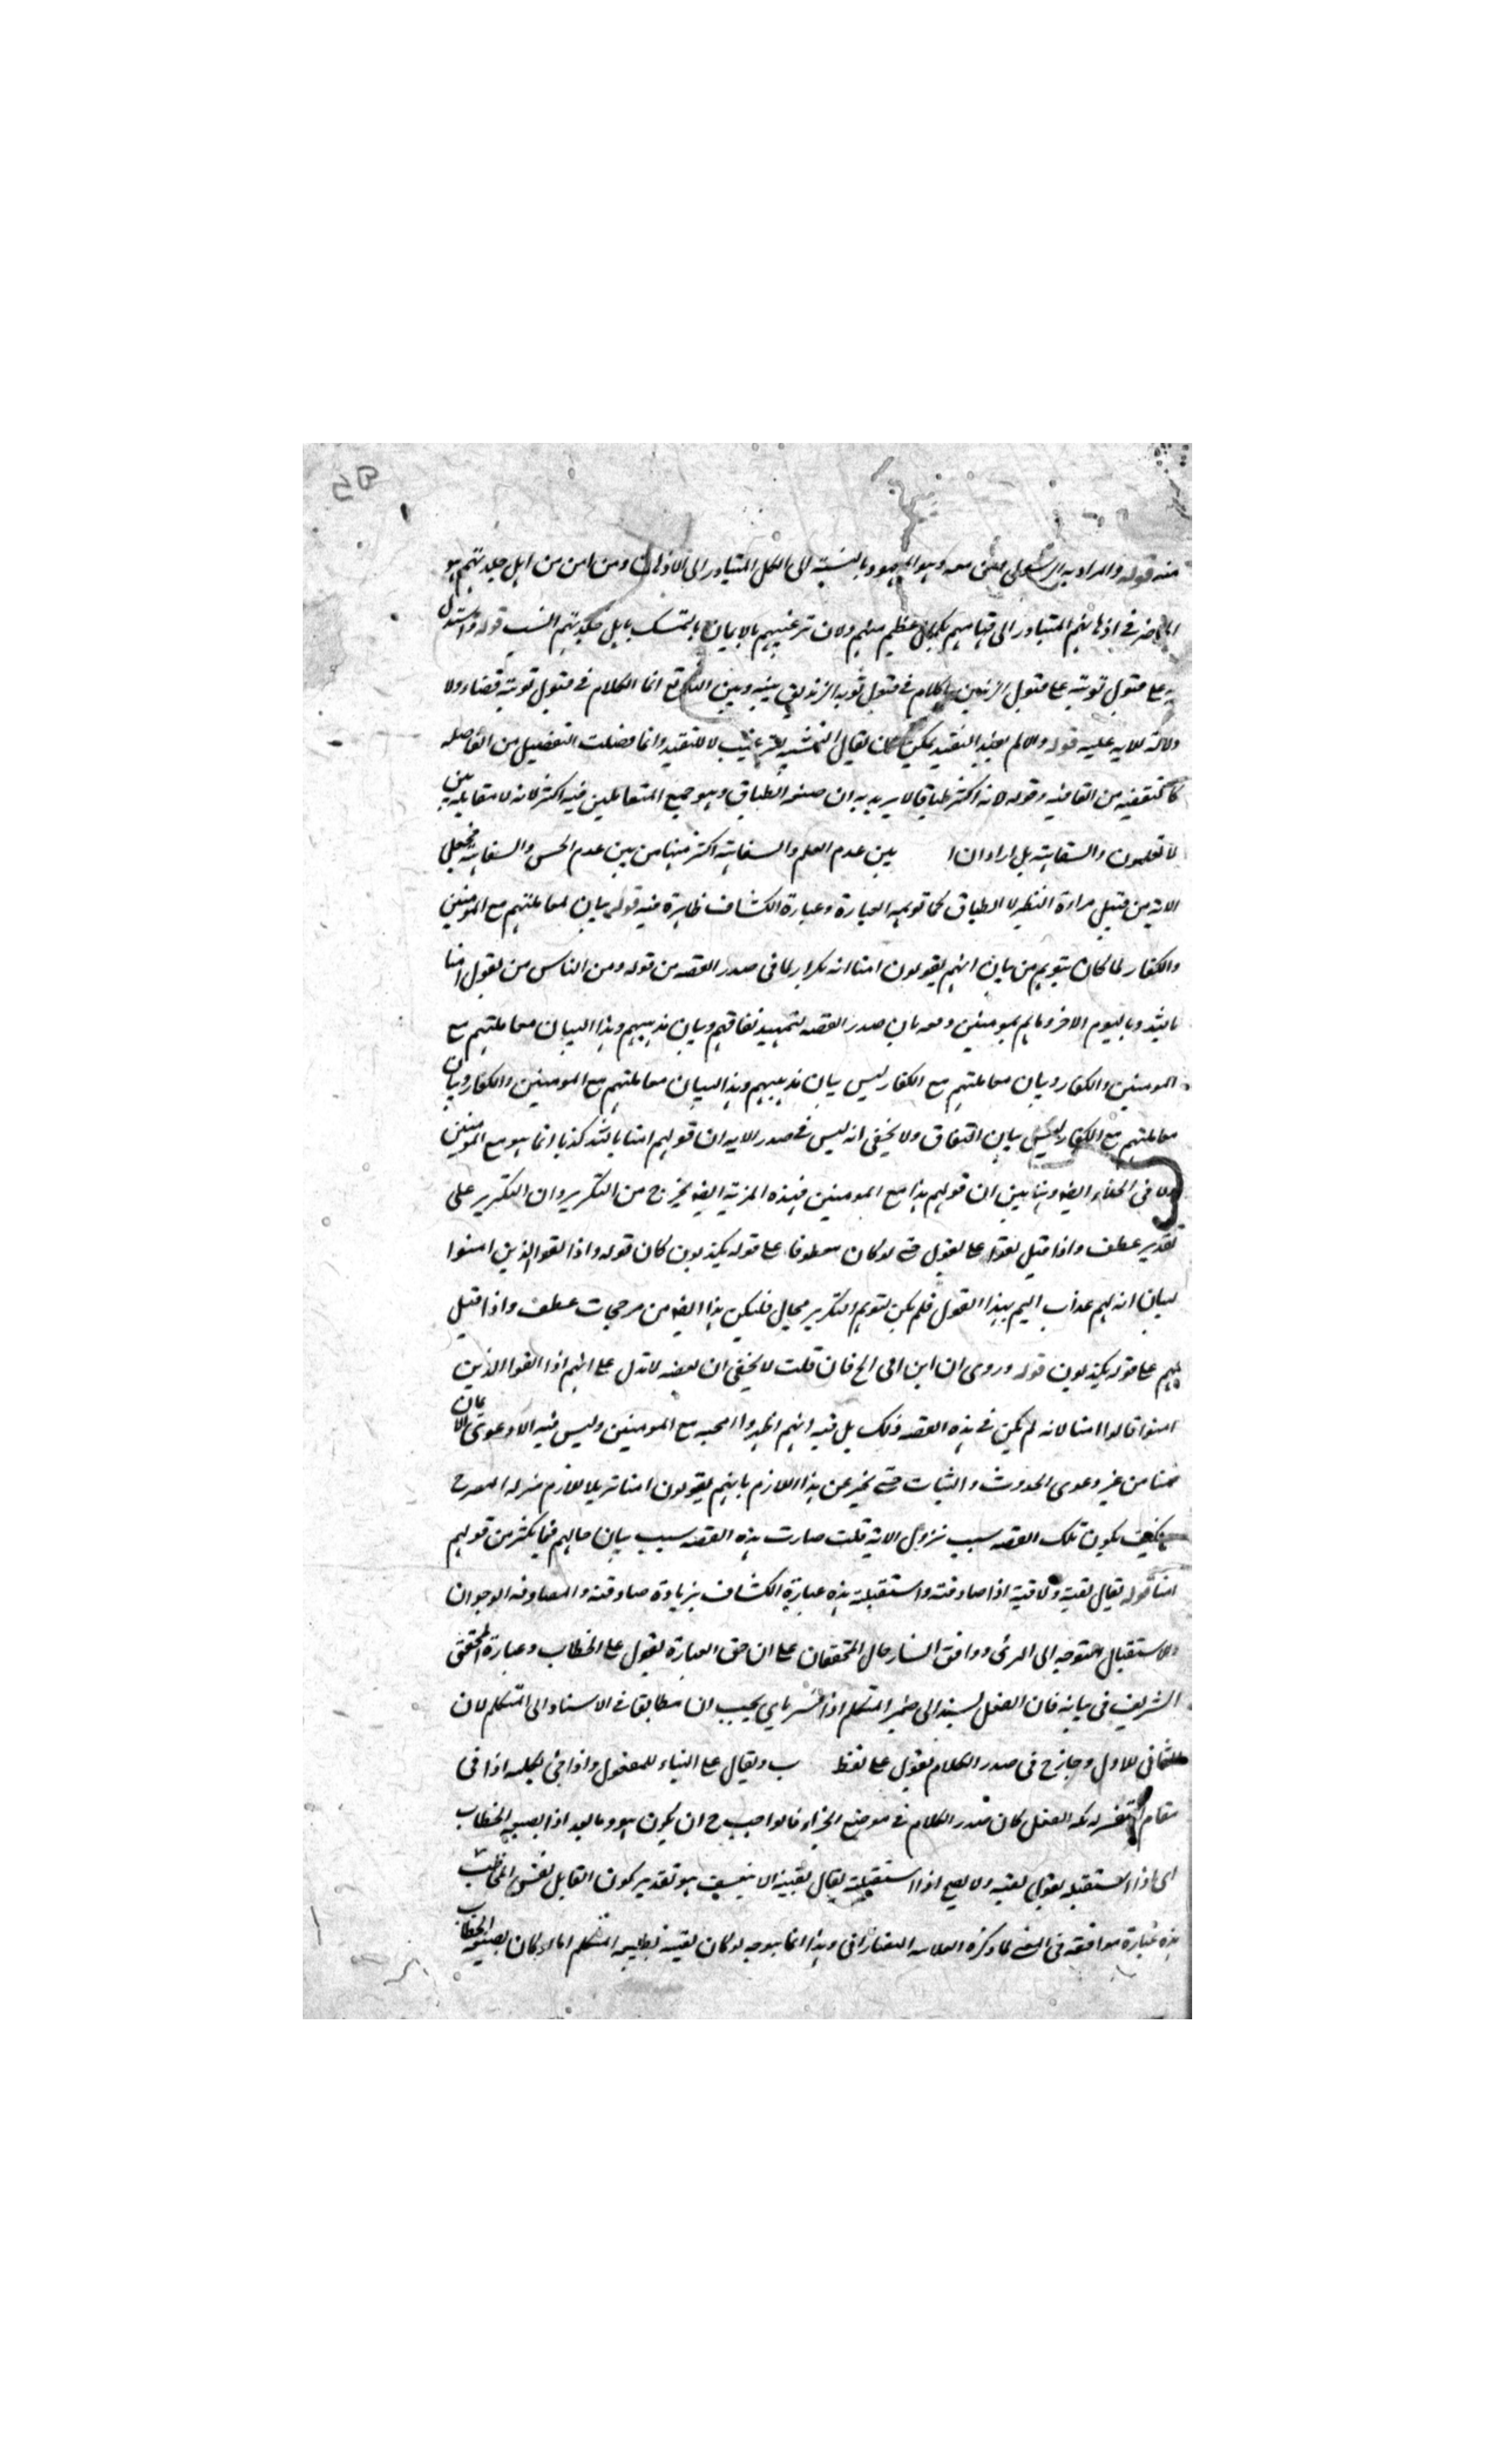 منه قوله والمراد به الرسول ومن معه وهو المعهود بالنسبة الى الكل المتبادر الى الاذهان ومن امن من اهل جلدتهم هو
في اذهانهم المتبادر الى قيامهم عظيم منهم ولان ترغيبهم بالايمان بالتمسك باهل جلدتهم انسب قوله واستدل
به على قبول توبته على قبول الكلام في قبول توبة الزنديق بينه وبين انما الكلام في قبول توبته قضاء ولا
دلالة للاية عليه قوله والا لم يفد التقييد يمكن ان يقال التشبيه للترغيب لا للتقييد وانما فصلت التفصيل من الفاصلة
كالتقفية من القافية وقوله لانه اكثر طباقا لا يريد به ان صنعة الطباق وهو جمع المتقابلين فيه اكثر لانه لا مقابلة بين
لا تعلمون والسفاهة بل اراد ان بين عدم العلم والسفاهة اكثر منها من بين عدم الحس والسفاهة فجعل
الاية من قبيل مراعاة النظير لا الطباق كما توهمه العبارة وعبارة الكشاف ظاهرة فيه قوله بيان لمعاملتهم مع المؤمنين
والكفار لما كان يتوهم من بيان انهم يقولون امنا انه تكرار لما في صدر القصة من قوله ومن الناس من يقول امنا
بالله وباليوم الاخر وما هم بمومنين دفعه بان صدر القصة لتمهيد نفاقهم وبيان مذهبهم وهذا لبيان معاملتهم مع
المومنين والكفار وبيان معاملتهم مع الكفار ليس بيان مذهبهم وهذا لبيان معاملتهم مع المومنين والكفار وبيان
معاملتهم مع الكفار ليس بيان النفاق ولا يخفى انه ليس في صدر الاية ان قولهم امنا بالله كذبا انما هو مع المومنين
ولا في الخفاء ايضا وهنا بين ان قولهم هذا مع المومنين فهذه المزية ايضا يخرج من التكرير وان التكرير على
تقدير عطف واذا قيل لهم على يقول حتى لو كان معطوفا على قوله يكذبون كان قوله واذا لقوا الذين امنوا
لبيان انه لهم عذاب اليم بهذا القول فلم يكن لتوهم التكرير مجال فليكن هذا ايضا من مرجحات عطف واذا قيل
لهم على قوله يكذبون قوله وروى ان ابن ابي الخ فان قلت لا يخفى ان القصة لا تدل على انهم اذا لقوا الذين
امنوا قالوا امنا لانه لم يكن في هذه القصة ذلك بل فيه انهم اظهروا المحبة مع المومنين وليس فيه الا دعوى الايمان
ضمنا من غير دعوى الحدوث والثبات حتى يخبر عن هذا اللازم بانهم يقولون امنا تنزيلا للازم منزلة المصرح
فكيف يكون تلك القصة سبب نزول الاية قلت صارت هذه القصة سبب بيان حالهم فيما يكثر من قولهم
امنا قوله يقال لقيته ولاقيته اذا صادفته واستقبلته هذه عبارة الكشاف بزيادة صادفته والمصادفة الوجدان
والاستقبال التوجه الى المرئ ووافق الشارحان المحققان على ان حق العبارة تقول على الخطاب وعبارة المحقق
الشريف في بيانه فان الفعل المسند الى ضمير المتكلم اذا فسر باي يجب ان تطابقا في الاسناد الى المتكلم لان
الثاني للاول وجاز في صدر الكلام تقول على لفظ ب ويقال على البناء للمفعول واذا جئ بكلمة اذا في
مقام التفسير لكه الفعل كان صدر الكلام في موضع الجزاء فالواجب ح ان يكون هو وما بعد اذا بصيغة الخطاب
اى اذا استقبلته تقول لقيته ولا يصح اذا استقبلته يقال لقيته الا بتعسف هو تقدير كون القايل نفس المخاطب
هذه عبارة موافقة في المعنى لما ذكره العلامة التفتازاني وهذا انما يوجه لو كان لقيته بصيغة المتكلم اما لو كان بصيغة الخطاب